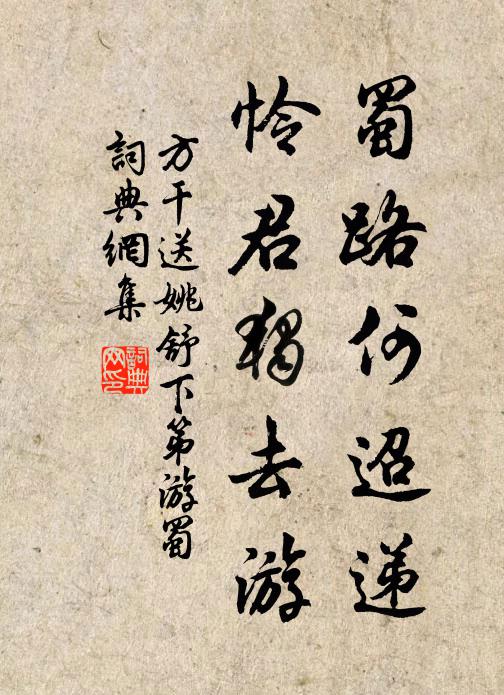 蜀路何迢递
怜君独去游
方干送姚舒下第游蜀
詞典網集
詞典网印